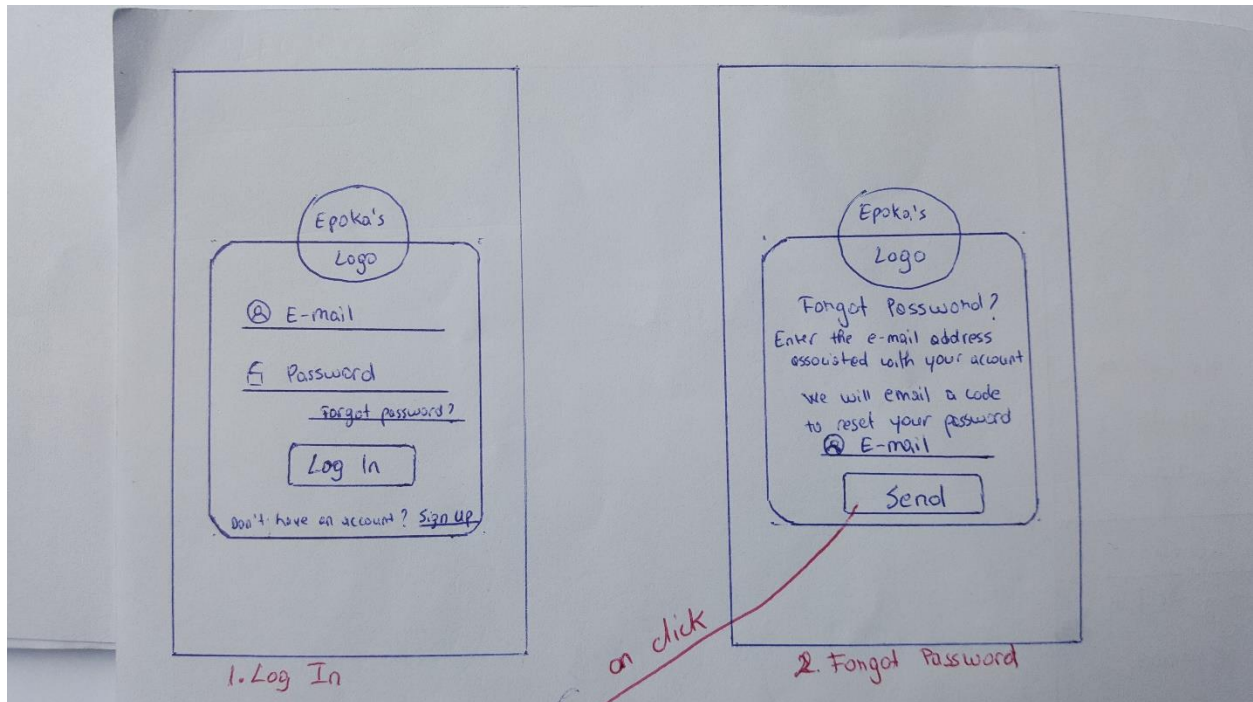 Epoka's
Logo
E-mail
Password
Forgot password?
Log In
Don't have an account? Sign up
1. Log In
Epoka's
Logo
Forgot Password?
Enter the e-mail address
associated with your account
we will email a code
to reset your password
E-mail
Send
on click
2. Forgot Password